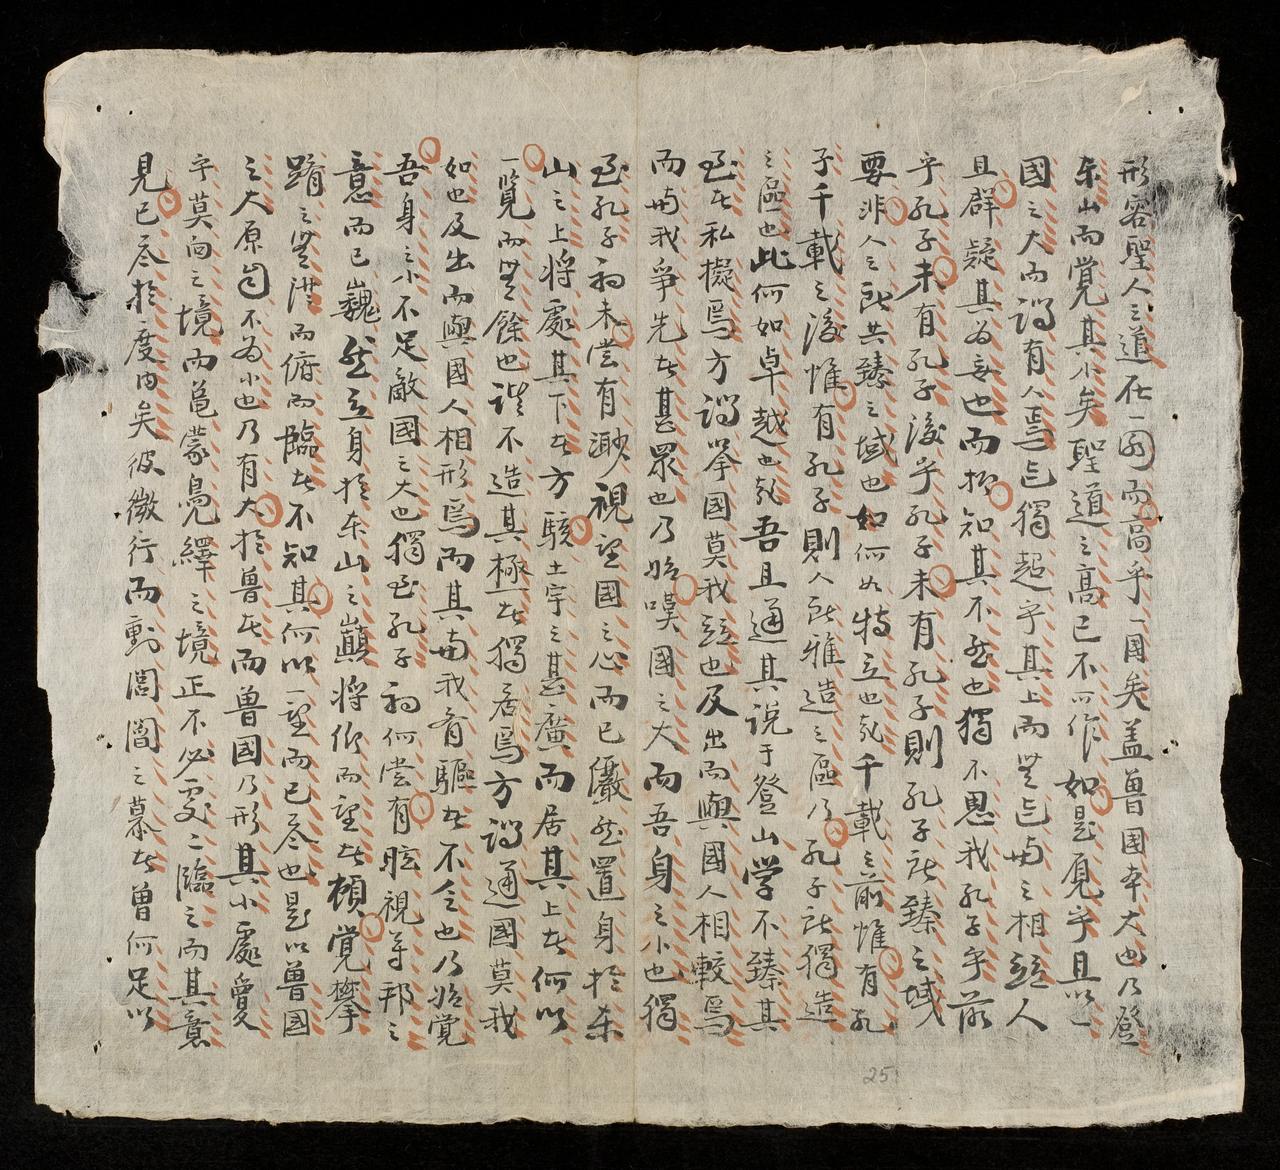 形容聖人之道在一國而高乎一國矣盖魯國本大也乃登
东山而覺其小矣聖道之高已不可作如是覌乎且以一
國之大而謂有人焉獨超乎其上而無与之相頡人
且群疑其为妄也而抑知其不然也獨不思我孔子乎前
乎孔子未有孔子後乎孔子未有孔子則孔子所臻之域
要非人之所共臻之域也如何如特立也哉千載之前惟有孔
子千載之後惟有孔子則人所难造之區乃孔子所獨造
之區也此何如卓越也哉吾且通其说于登山学不臻其
至者私擬焉方謂举國莫我頡也及出而與國人相較焉
而与我爭先者甚眾也乃始嘆國之大而吾身之小也獨
至孔子初未尝有渺視望國之心而已儼然置身於东
山之上将處其下者方駭土宇之甚廣而居其上者何以
一覽而無餘也誰不造其極者獨居焉方謂通國莫我
如也及出而與國人相形焉而其与我齊驅者不乏也乃始覺
吾身之小不足敵國之大也獨至孔子初何尝有眩視尊邦之
意而已巍然立身於东山之巔将仰而望者頓覺攀
躋之無從而俯而臨者不知其何以一望而已尽也是以魯國
之大原自不为小也乃有大於魯者而魯國乃形其小處夐
乎莫尚之境而龜蒙鳧繹之境正不必处二臨之而其意
見已尽於一度内矣彼徵行而動誾誾之慕者曾何足以
25